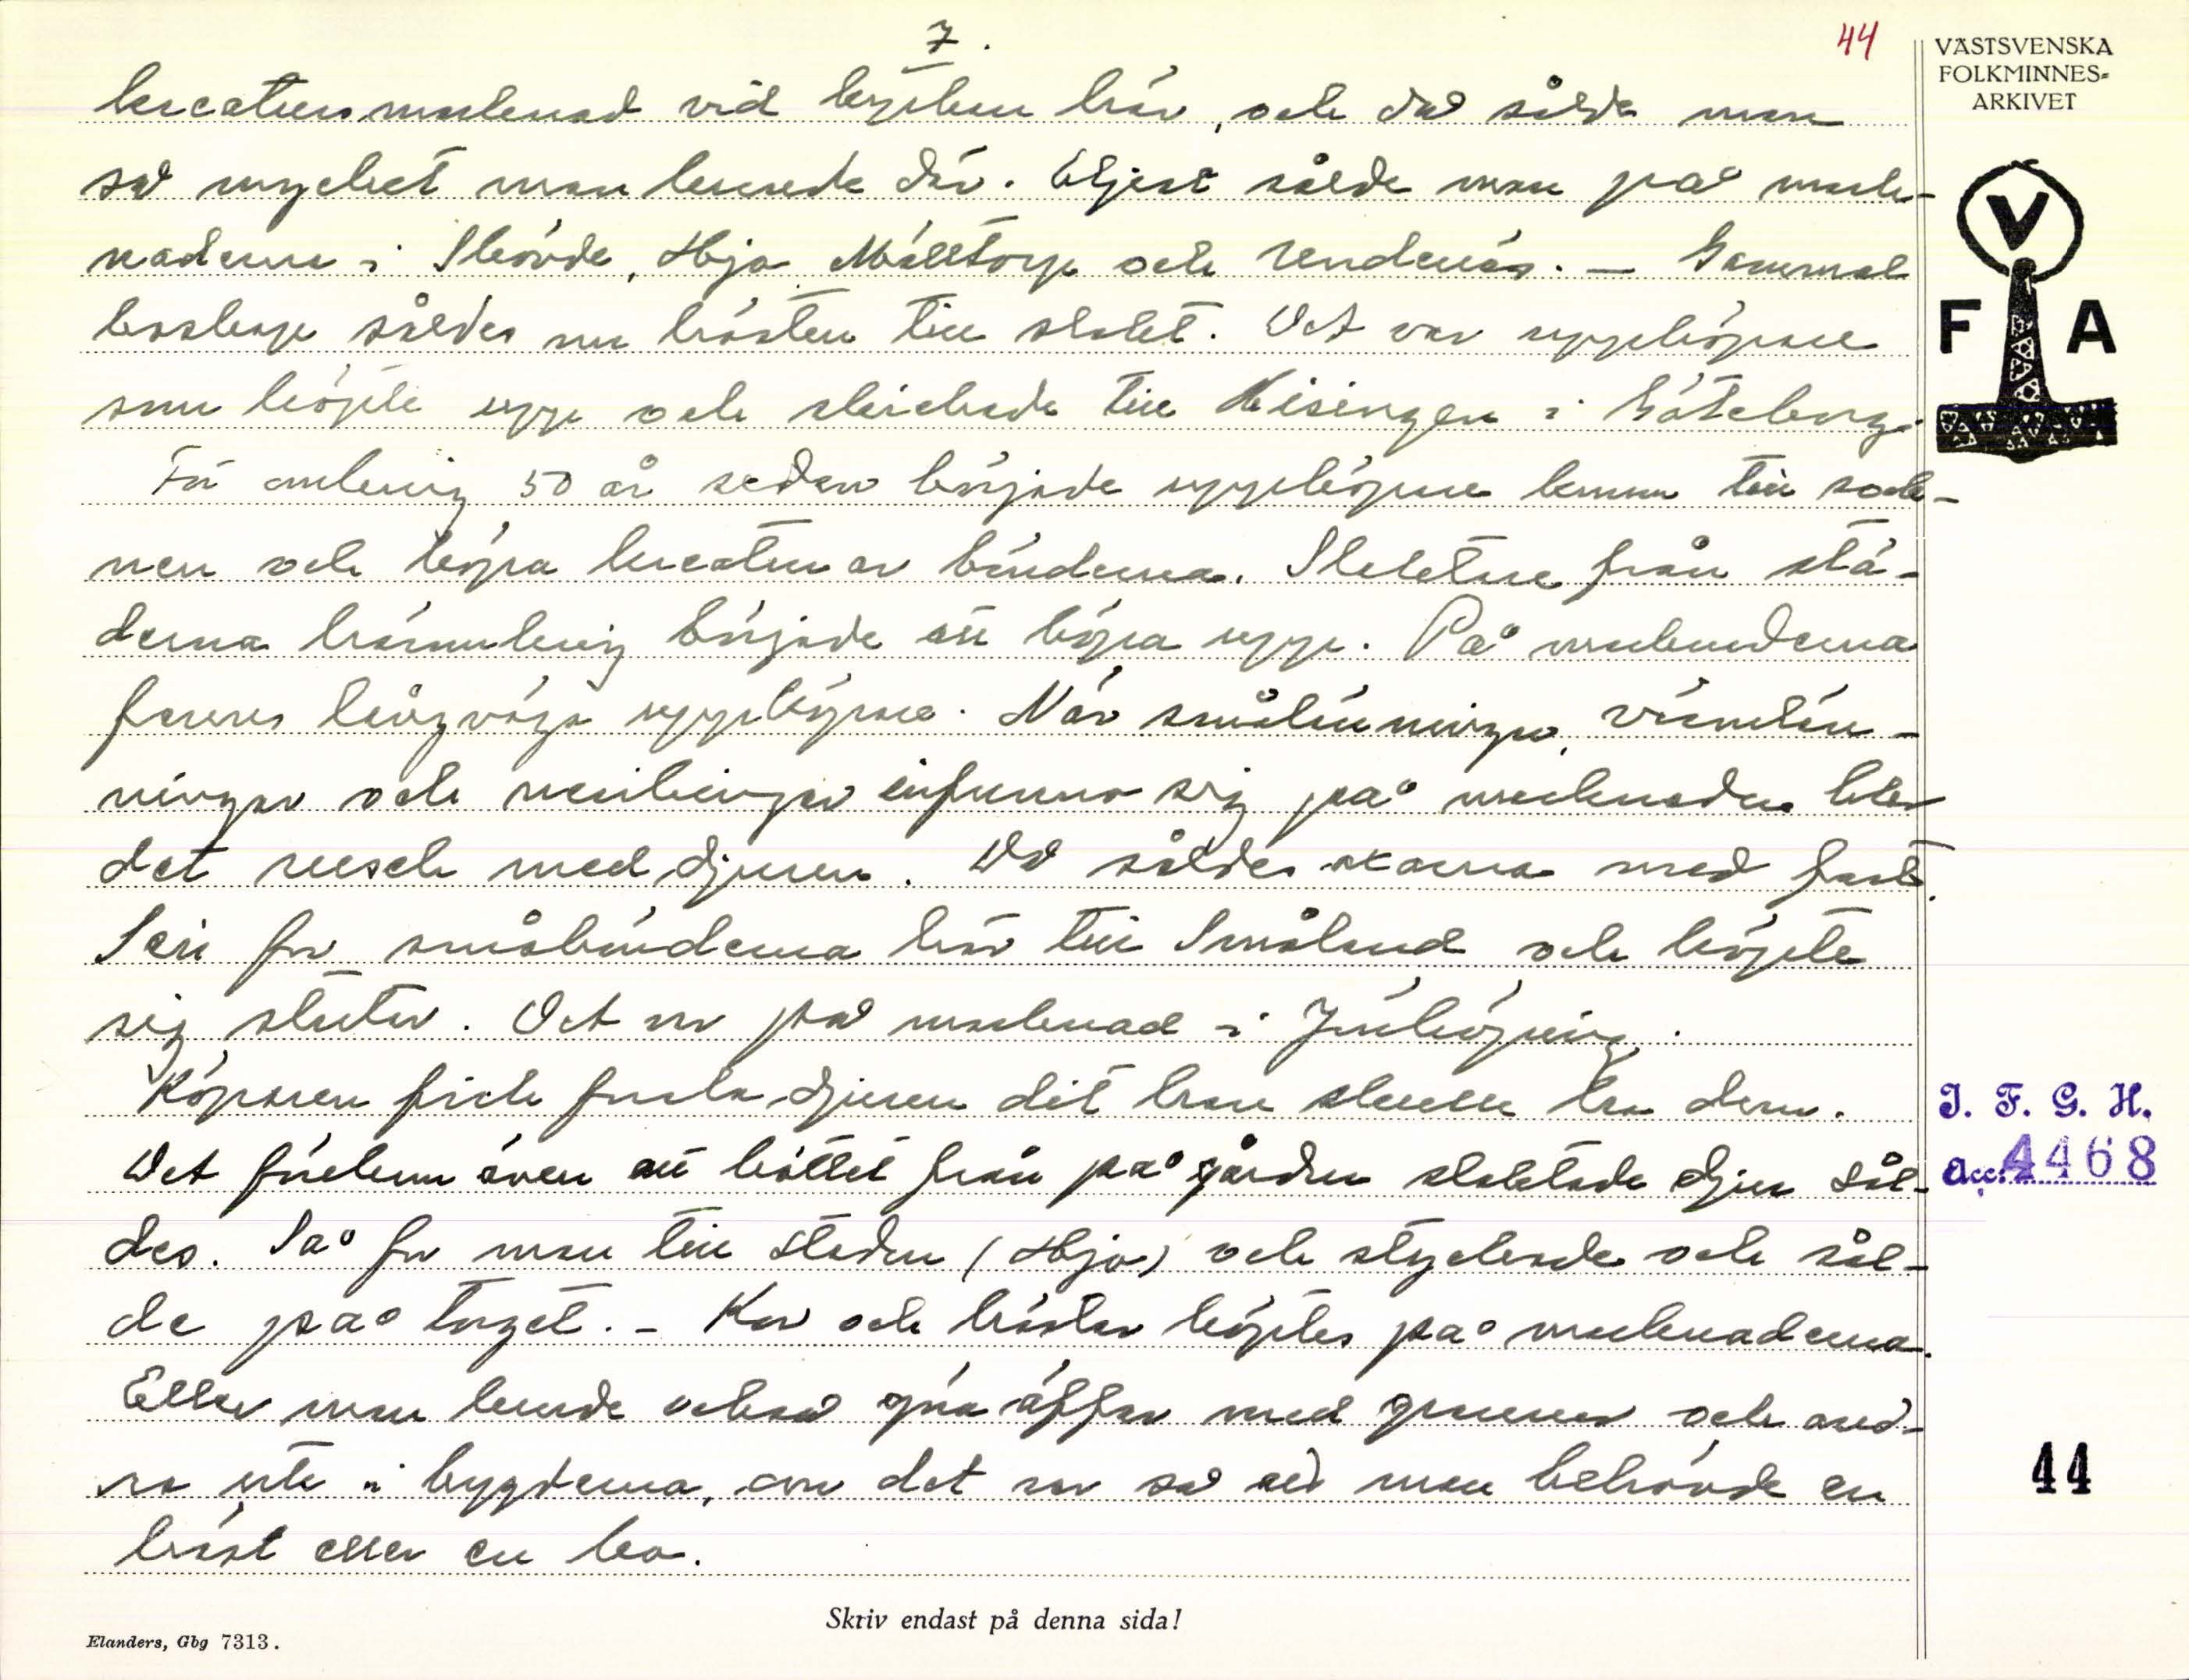 7.
44
VÄSTSVENSKA
FOLKMINNES-
ARKIVET
V
F A
kreatursmarknad vid kyrkan här, och då sålde man
så mycket man kunde där. Eljest sålde man på mark-
naderna i Skövde, Hjo Mölltorp och Rendenäs. – Gammal
boskap såldes om hösten till slakt. Det var uppköpare
som köpte upp och skickade till Hisingen i Göteborg.
För omkring 50 år sedan började uppköpare komma till sock-
nen och köpa kreatur av bönderna. Slaktare från stä-
derna häromkring började att köpa upp. På marknaderna
fanns långväga uppköpare. När smålänningar, värmlän-
ningar och nerikingar infunno sig på marknaden blev
det rusch med djuren. Då såldes oxarna med fart.
Seri for småbönderna här till Småland och köpte
sig stutar. Det var på marknad i Jönköping.
Köparen fick frakta djuren dit han skulle ha dem.
Det förekom även att köttet från på gården slaktade djur sål-
des. Så for man till staden (Hjo) och styckade och sål-
de på torget. – Kor och hästar köptes på marknaderna.
Eller man kunde också göra affär med grannar och and-
ra ute i bygderna, om det var så att man behövde en
häst eller en ko.
I. F. G. H.
Acc. 4468
44
Skriv endast på denna sida!
Elanders, Gbg 7313.